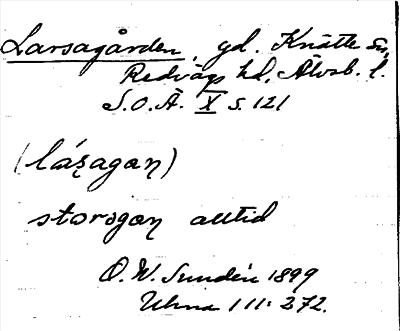 Larsagården, gd. Knätte sn,
Redvägs hd, Älvsb. l.
S.O.Ä. X s. 121
(lásagan)
storsgon alltid
O.W. Sundén 1899
Uhna 111: 272.